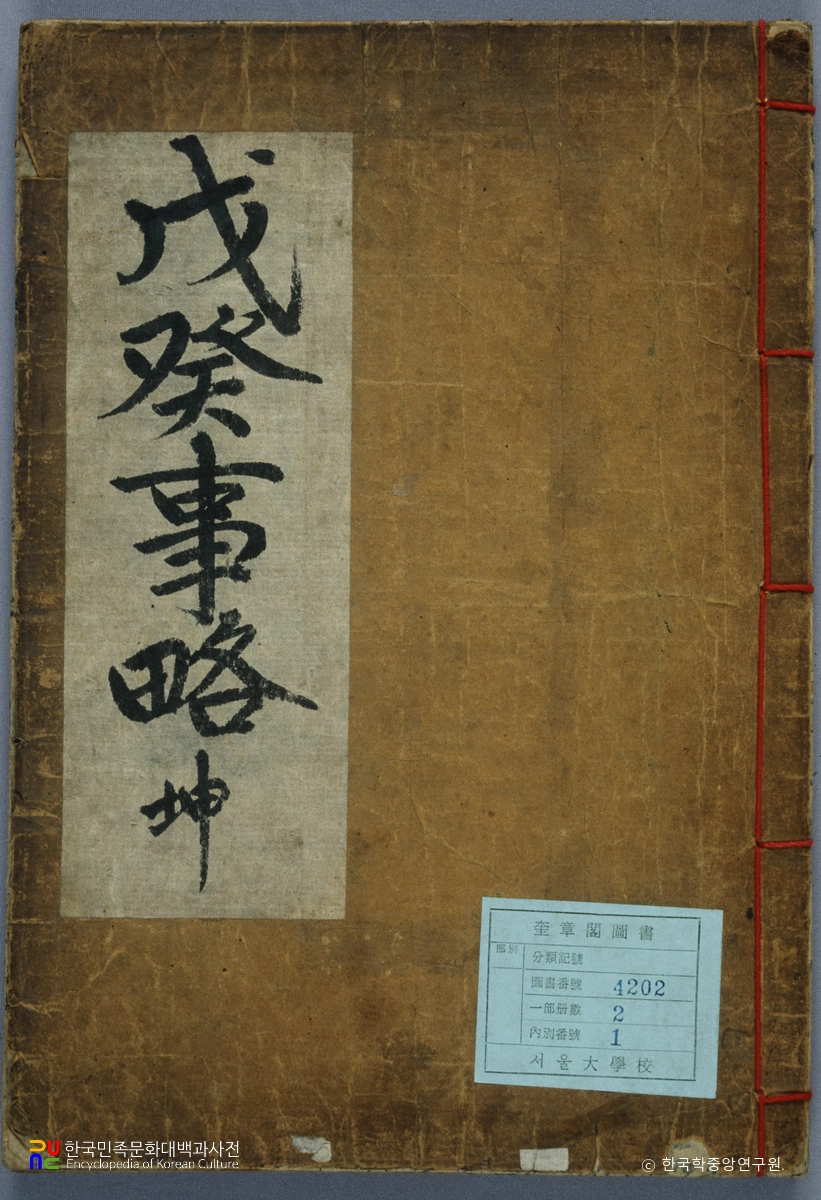 戊癸事略 坤
奎章閣圖書
部別
分類記號
圖書番號 4202
一部冊數 2
內別番號 1
서울大學校
한국민족문화대백과사전
Encyclopedia of Korean Culture
© 한국학중앙연구원.